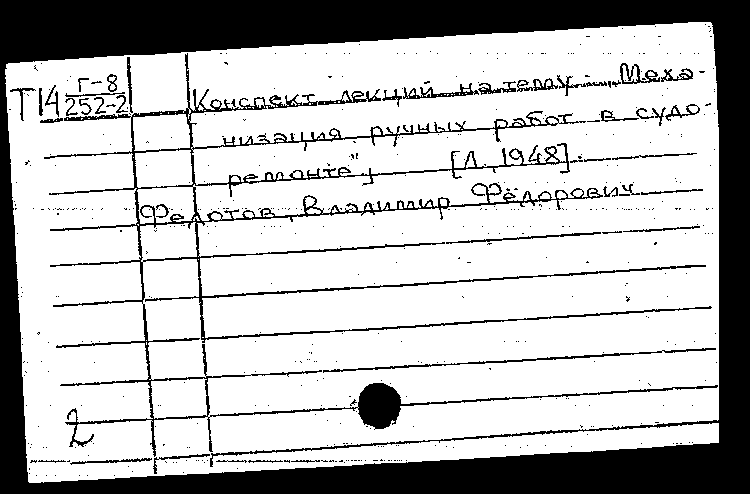 Т14 Г-8
252-2
Конспект лекций на тему: „Меха-
низация ручных работ в судо-
ремонте", [Л., 1948].
Федотов, Владимир Фёдорович
2